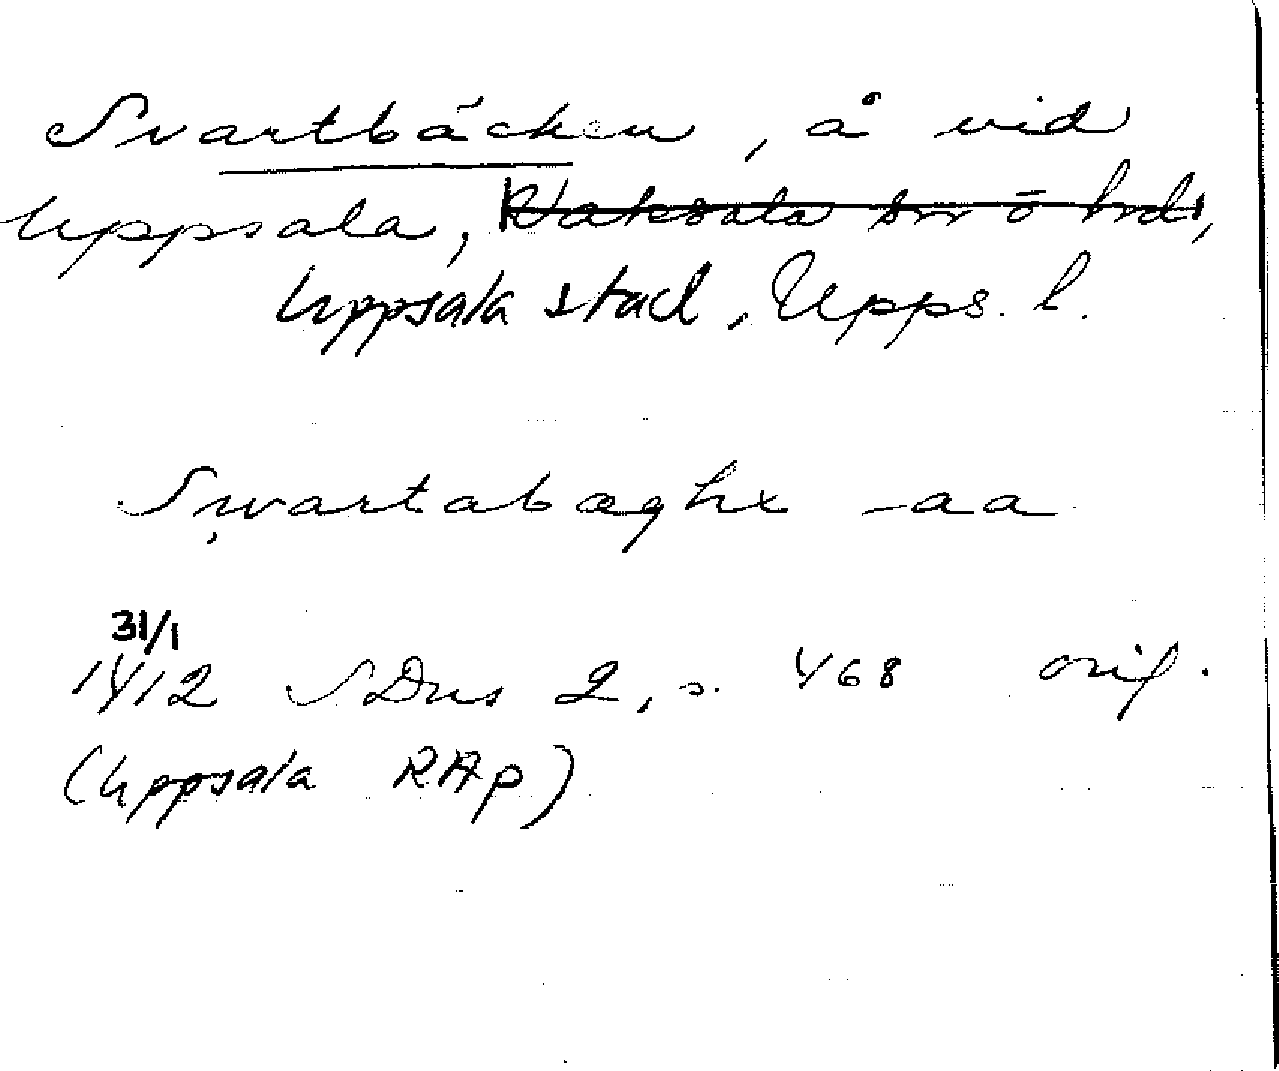 Svartbäcken, å vid
Uppsala, Vaksala sn ö hd,
Uppsala stad, Upps. l.
Swartabæghx -aa
31/1
1412 SDns 2, s. 468 orig.
(Uppsala RAp)